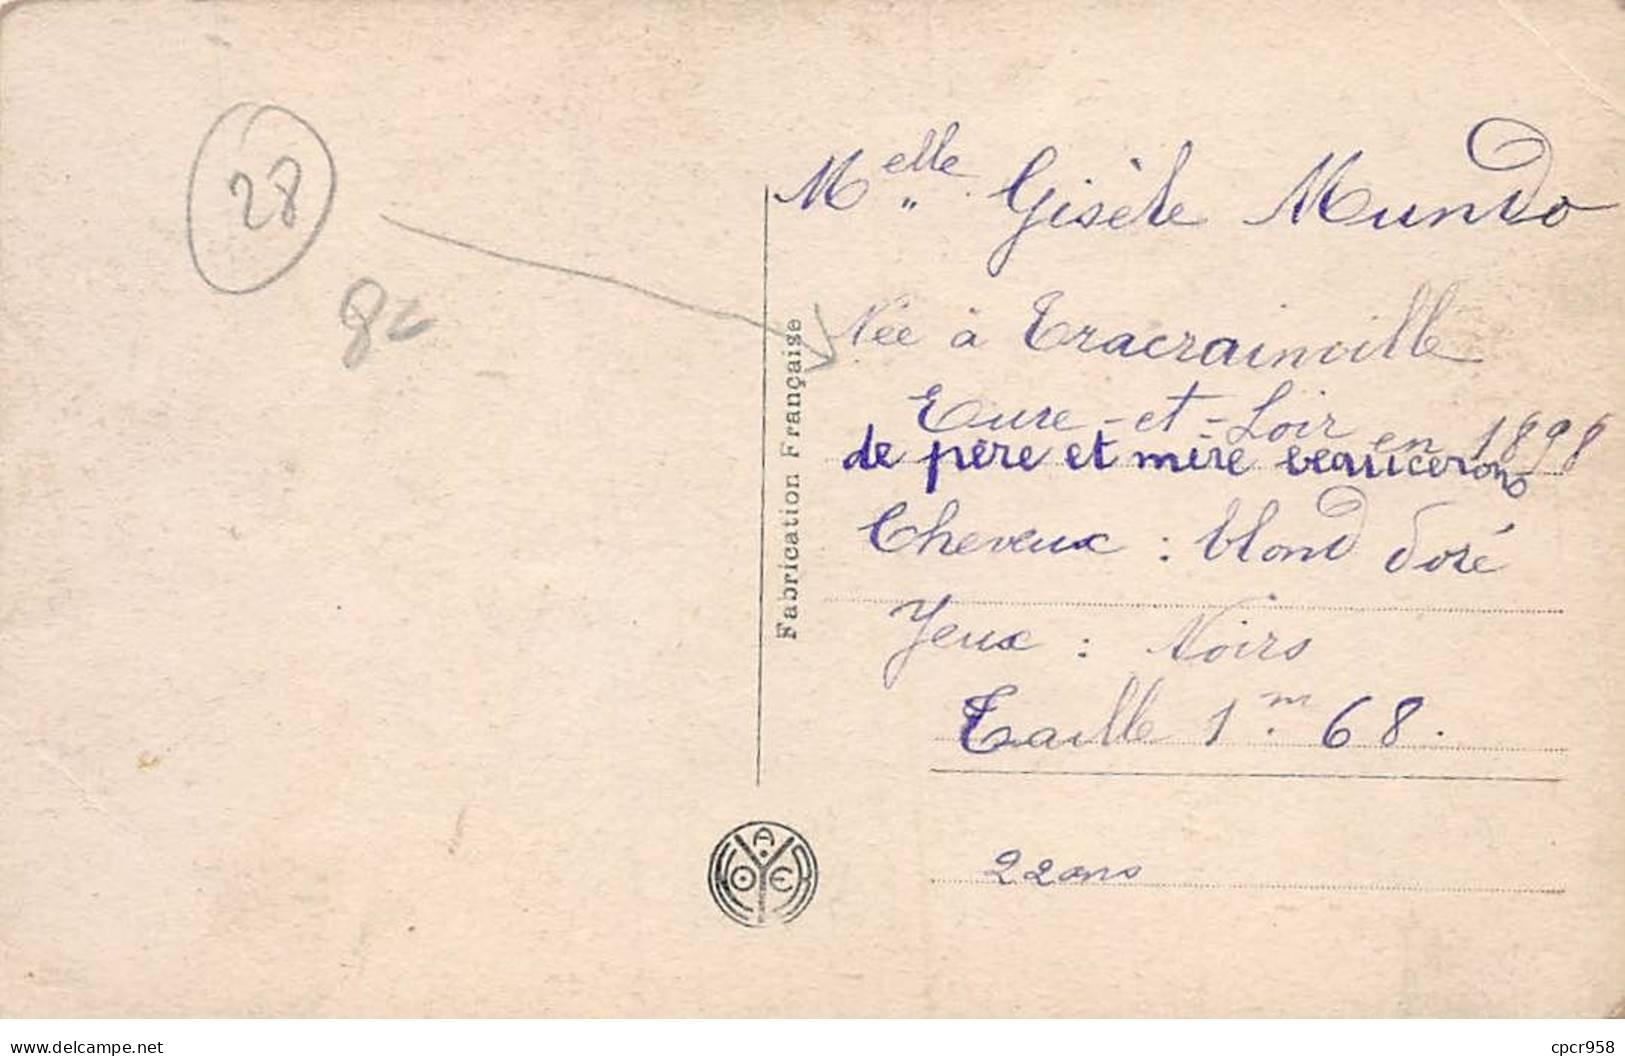 28
Melle Gisèle Mundo
Née à Tracrainville
Eure-et-Loir en 1898
de père et mère beaucerons
Cheveux : blond doré
Yeux : Noirs
Taille 1m 68.
22 ans
Fabrication Française
delcampe.net
cpcr958